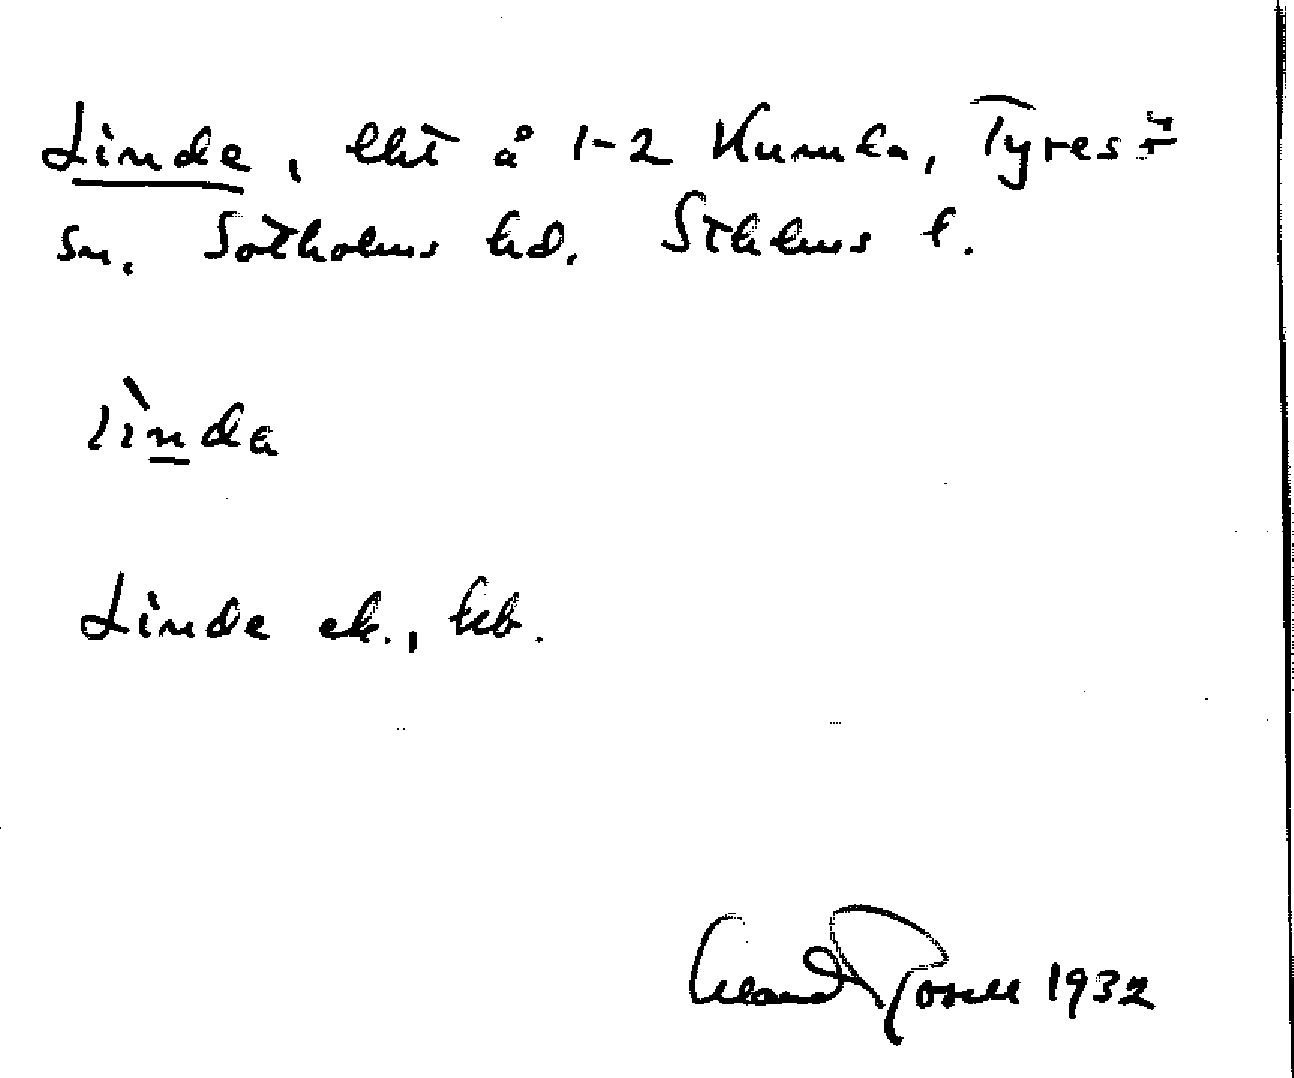 Linde, lht å 1-2 Kumla, Tyresö
sn. Sotholms hd. Sthlms l.
lìnda
Linde ek., kb.
1932